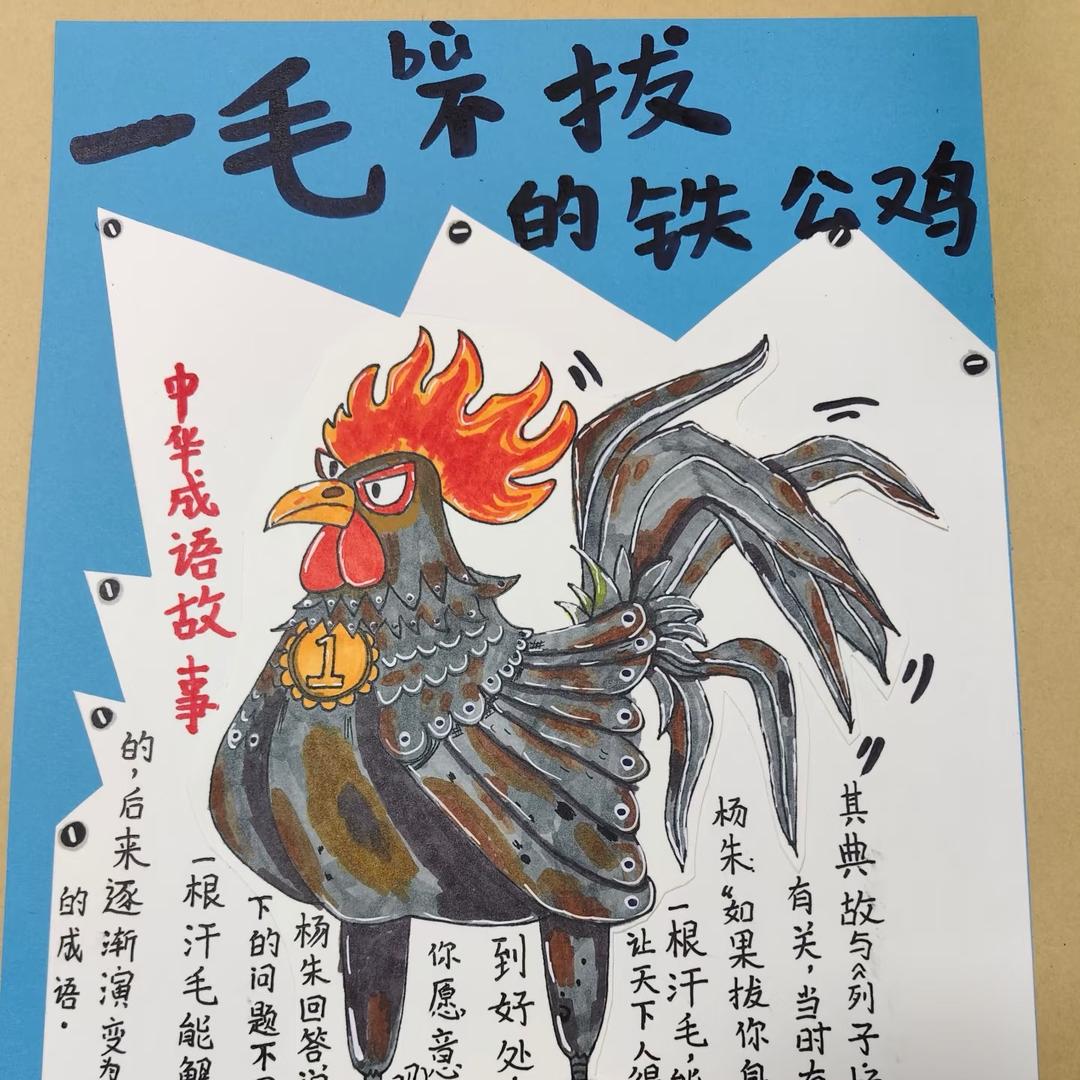 bù
一毛不拔
的铁公鸡
中华成语故事
1
其典故与《列子·
有关,当时有
杨朱:“如果拔你身
一根汗毛,能
让天下人得
到好处,
你愿意
杨朱回答说
下的问题不
一根汗毛能解
的,后来逐渐演变为
的成语.